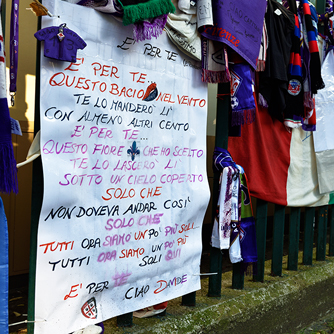 E' PER TE...
E' PER TE...
QUESTO BACIO NEL VENTO
TE LO MANDERO' LI'
CON ALMENO ALTRI CENTO
E' PER TE...
QUESTO FIORE CHE HO SCELTO
TE LO LASCERO' LI'
SOTTO UN CIELO COPERTO
SOLO CHE
NON DOVEVA ANDAR COSI'
SOLO CHE
TUTTI ORA SIAMO UN PO' PIU' SOLI
TUTTI ORA SIAMO UN PO' PIU'
SOLI QUI
E' PER TE CIAO DAVIDE